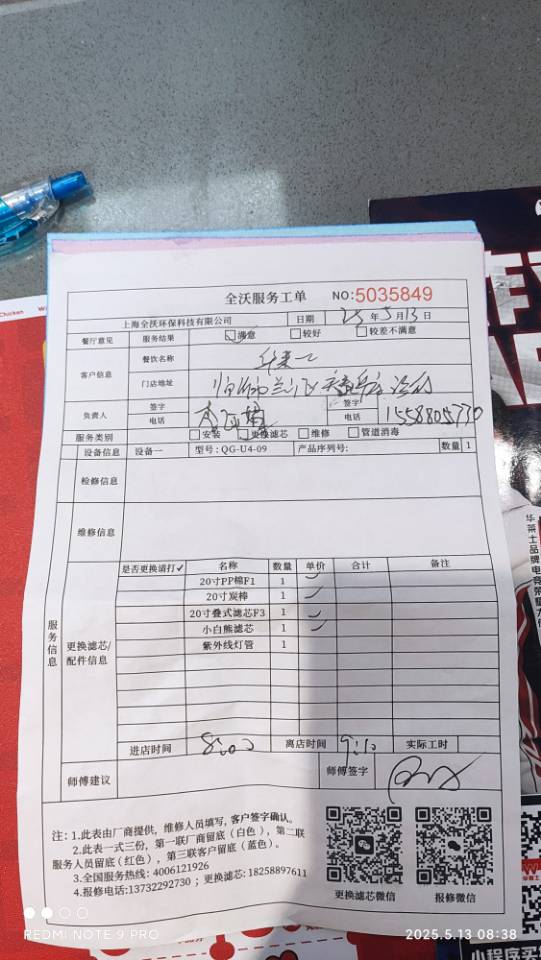 全沃服务工单 NO:5035849
上海全沃环保科技有限公司 日期 25 年 5 月 13 日
餐厅意见 服务结果 满意 较好 较差不满意
客户信息 餐饮名称
门店地址
负责人 签字 签字
电话 电话 15588805730
服务类别 安装 更换滤芯 维修 管道消毒
设备信息 设备一 型号: QG-U4-09 产品序列号: 数量 1
检修信息
维修信息
服务信息
更换滤芯/配件信息
是否更换请打✓ 名称 数量 单价 合计 备注
20寸PP棉F1 1
20寸炭棒 1
20寸叠式滤芯F3 1
小白熊滤芯 1
紫外线灯管 1
进店时间 8:00 离店时间 9:10 实际工时
师傅建议 师傅签字
注: 1.此表由厂商提供, 维修人员填写, 客户签字确认。
2.此表一式三份, 第一联厂商留底(白色), 第二联
服务人员留底(红色), 第三联客户留底(蓝色)。
3.全国服务热线: 4006121926
4.报修电话:13732292730 ; 更换滤芯: 18258897611
更换滤芯微信 报修微信
REDMI NOTE 9 PRO
2025.5.13 08:38
Chicken
华莱士品牌电竞
小程序买